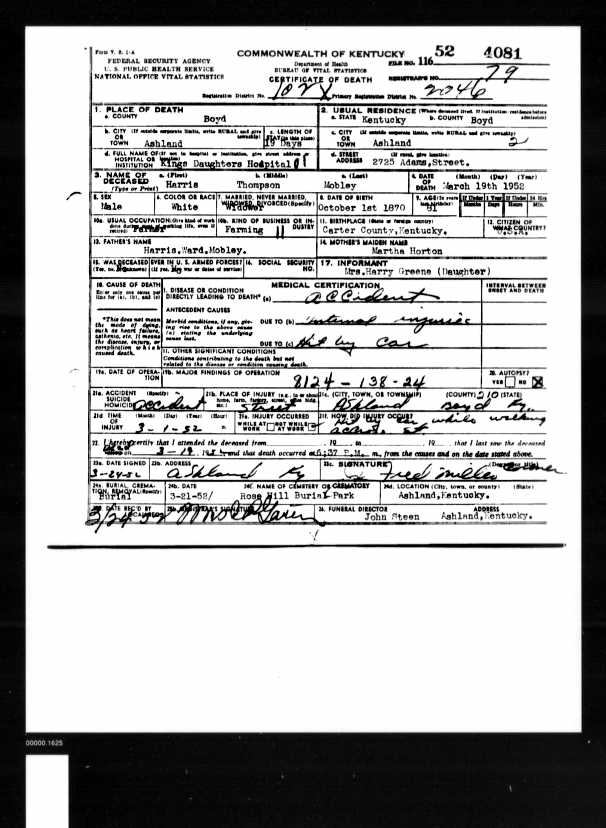 Form V. S. 1-A
FEDERAL SECURITY AGENCY
U. S. PUBLIC HEALTH SERVICE
NATIONAL OFFICE VITAL STATISTICS
COMMONWEALTH OF KENTUCKY
Department of Health
BUREAU OF VITAL STATISTICS
CERTIFICATE OF DEATH
FILE NO. 116 52 4081
REGISTRAR'S NO. 79
Registration District No. Primary Registration District No. 2046
1. PLACE OF DEATH
a. COUNTY Boyd
2. USUAL RESIDENCE (Where deceased lived. If institution: residence before admission)
a. STATE Kentucky b. COUNTY Boyd
b. CITY (If outside corporate limits, write RURAL and give township) OR TOWN Ashland
c. LENGTH OF STAY (in this place) 19 Days
c. CITY (If outside corporate limits, write RURAL and give township) OR TOWN Ashland 2
d. FULL NAME OF (If not in hospital or institution, give street address or location) HOSPITAL OR INSTITUTION Kings Daughters Hospital
d. STREET ADDRESS (If rural, give location) 2725 Adams,Street.
3. NAME OF DECEASED (Type or Print)
a. (First) Harris b. (Middle) Thompson c. (Last) Mobley
4. DATE OF DEATH (Month) (Day) (Year) March 19th 1952
5. SEX Male
6. COLOR OR RACE White
7. MARRIED, NEVER MARRIED, WIDOWED, DIVORCED (Specify) Widower
8. DATE OF BIRTH October 1st 1870
9. AGE (In years last birthday) 81 If Under 1 Year Months Days If Under 24 Hrs Hours Min.
10a. USUAL OCCUPATION (Give kind of work done during most of working life, even if retired) Farmer
10b. KIND OF BUSINESS OR INDUSTRY Farming
11. BIRTHPLACE (State or foreign country) Carter County,Kentucky.
12. CITIZEN OF WHAT COUNTRY? U.S.A.
13. FATHER'S NAME Harris,Ward,Mobley.
14. MOTHER'S MAIDEN NAME Martha Horton
15. WAS DECEASED EVER IN U. S. ARMED FORCES? (Yes, no, or unknown) (If yes, give war or dates of service)
16. SOCIAL SECURITY NO.
17. INFORMANT Mrs.Harry Greene (Daughter)
18. CAUSE OF DEATH
Enter only one cause per line for (a), (b), and (c)
MEDICAL CERTIFICATION
INTERVAL BETWEEN ONSET AND DEATH
I. DISEASE OR CONDITION DIRECTLY LEADING TO DEATH* (a) Accident
*This does not mean the mode of dying, such as heart failure, asthenia, etc. It means the disease, injury, or complication which caused death.
ANTECEDENT CAUSES
Morbid conditions, if any, giving rise to the above cause (a) stating the underlying cause last.
DUE TO (b) internal injuries
DUE TO (c) Hit by car
II. OTHER SIGNIFICANT CONDITIONS
Conditions contributing to the death but not related to the disease or condition causing death.
19a. DATE OF OPERATION
19b. MAJOR FINDINGS OF OPERATION
8124 - 138 - 24
20. AUTOPSY? YES NO X
21a. ACCIDENT SUICIDE HOMICIDE (Specify) Accident
21b. PLACE OF INJURY (e.g., in or about home, farm, factory, street, office bldg., etc.) Street
21c. (CITY, TOWN, OR TOWNSHIP) (COUNTY) (STATE) Ashland Boyd Ky.
21d. TIME OF INJURY (Month) (Day) (Year) (Hour) 3-1-52 m
21e. INJURY OCCURRED WHILE AT WORK NOT WHILE AT WORK
21f. HOW DID INJURY OCCUR? Hit by car while walking across st
22. I hereby certify that I attended the deceased from 19 to 19 that I last saw the deceased
on 3-19, 1952 and that death occurred at 6:37 P.M. m., from the causes and on the date stated above.
23a. DATE SIGNED 3-24-52
23b. ADDRESS Ashland Ky
23c. SIGNATURE Fred Miller (Degree or title) Coroner
24a. BURIAL, CREMATION, REMOVAL (Specify) Burial
24b. DATE 3-21-52/
24c. NAME OF CEMETERY OR CREMATORY Rose Hill Burial Park
24d. LOCATION (City, town, or county) (State) Ashland,Kentucky.
25a. DATE REC'D BY LOCAL REG. 3/24/52
25b. REGISTRAR'S SIGNATURE
26. FUNERAL DIRECTOR John Steen ADDRESS Ashland,Kentucky.
00000.1625